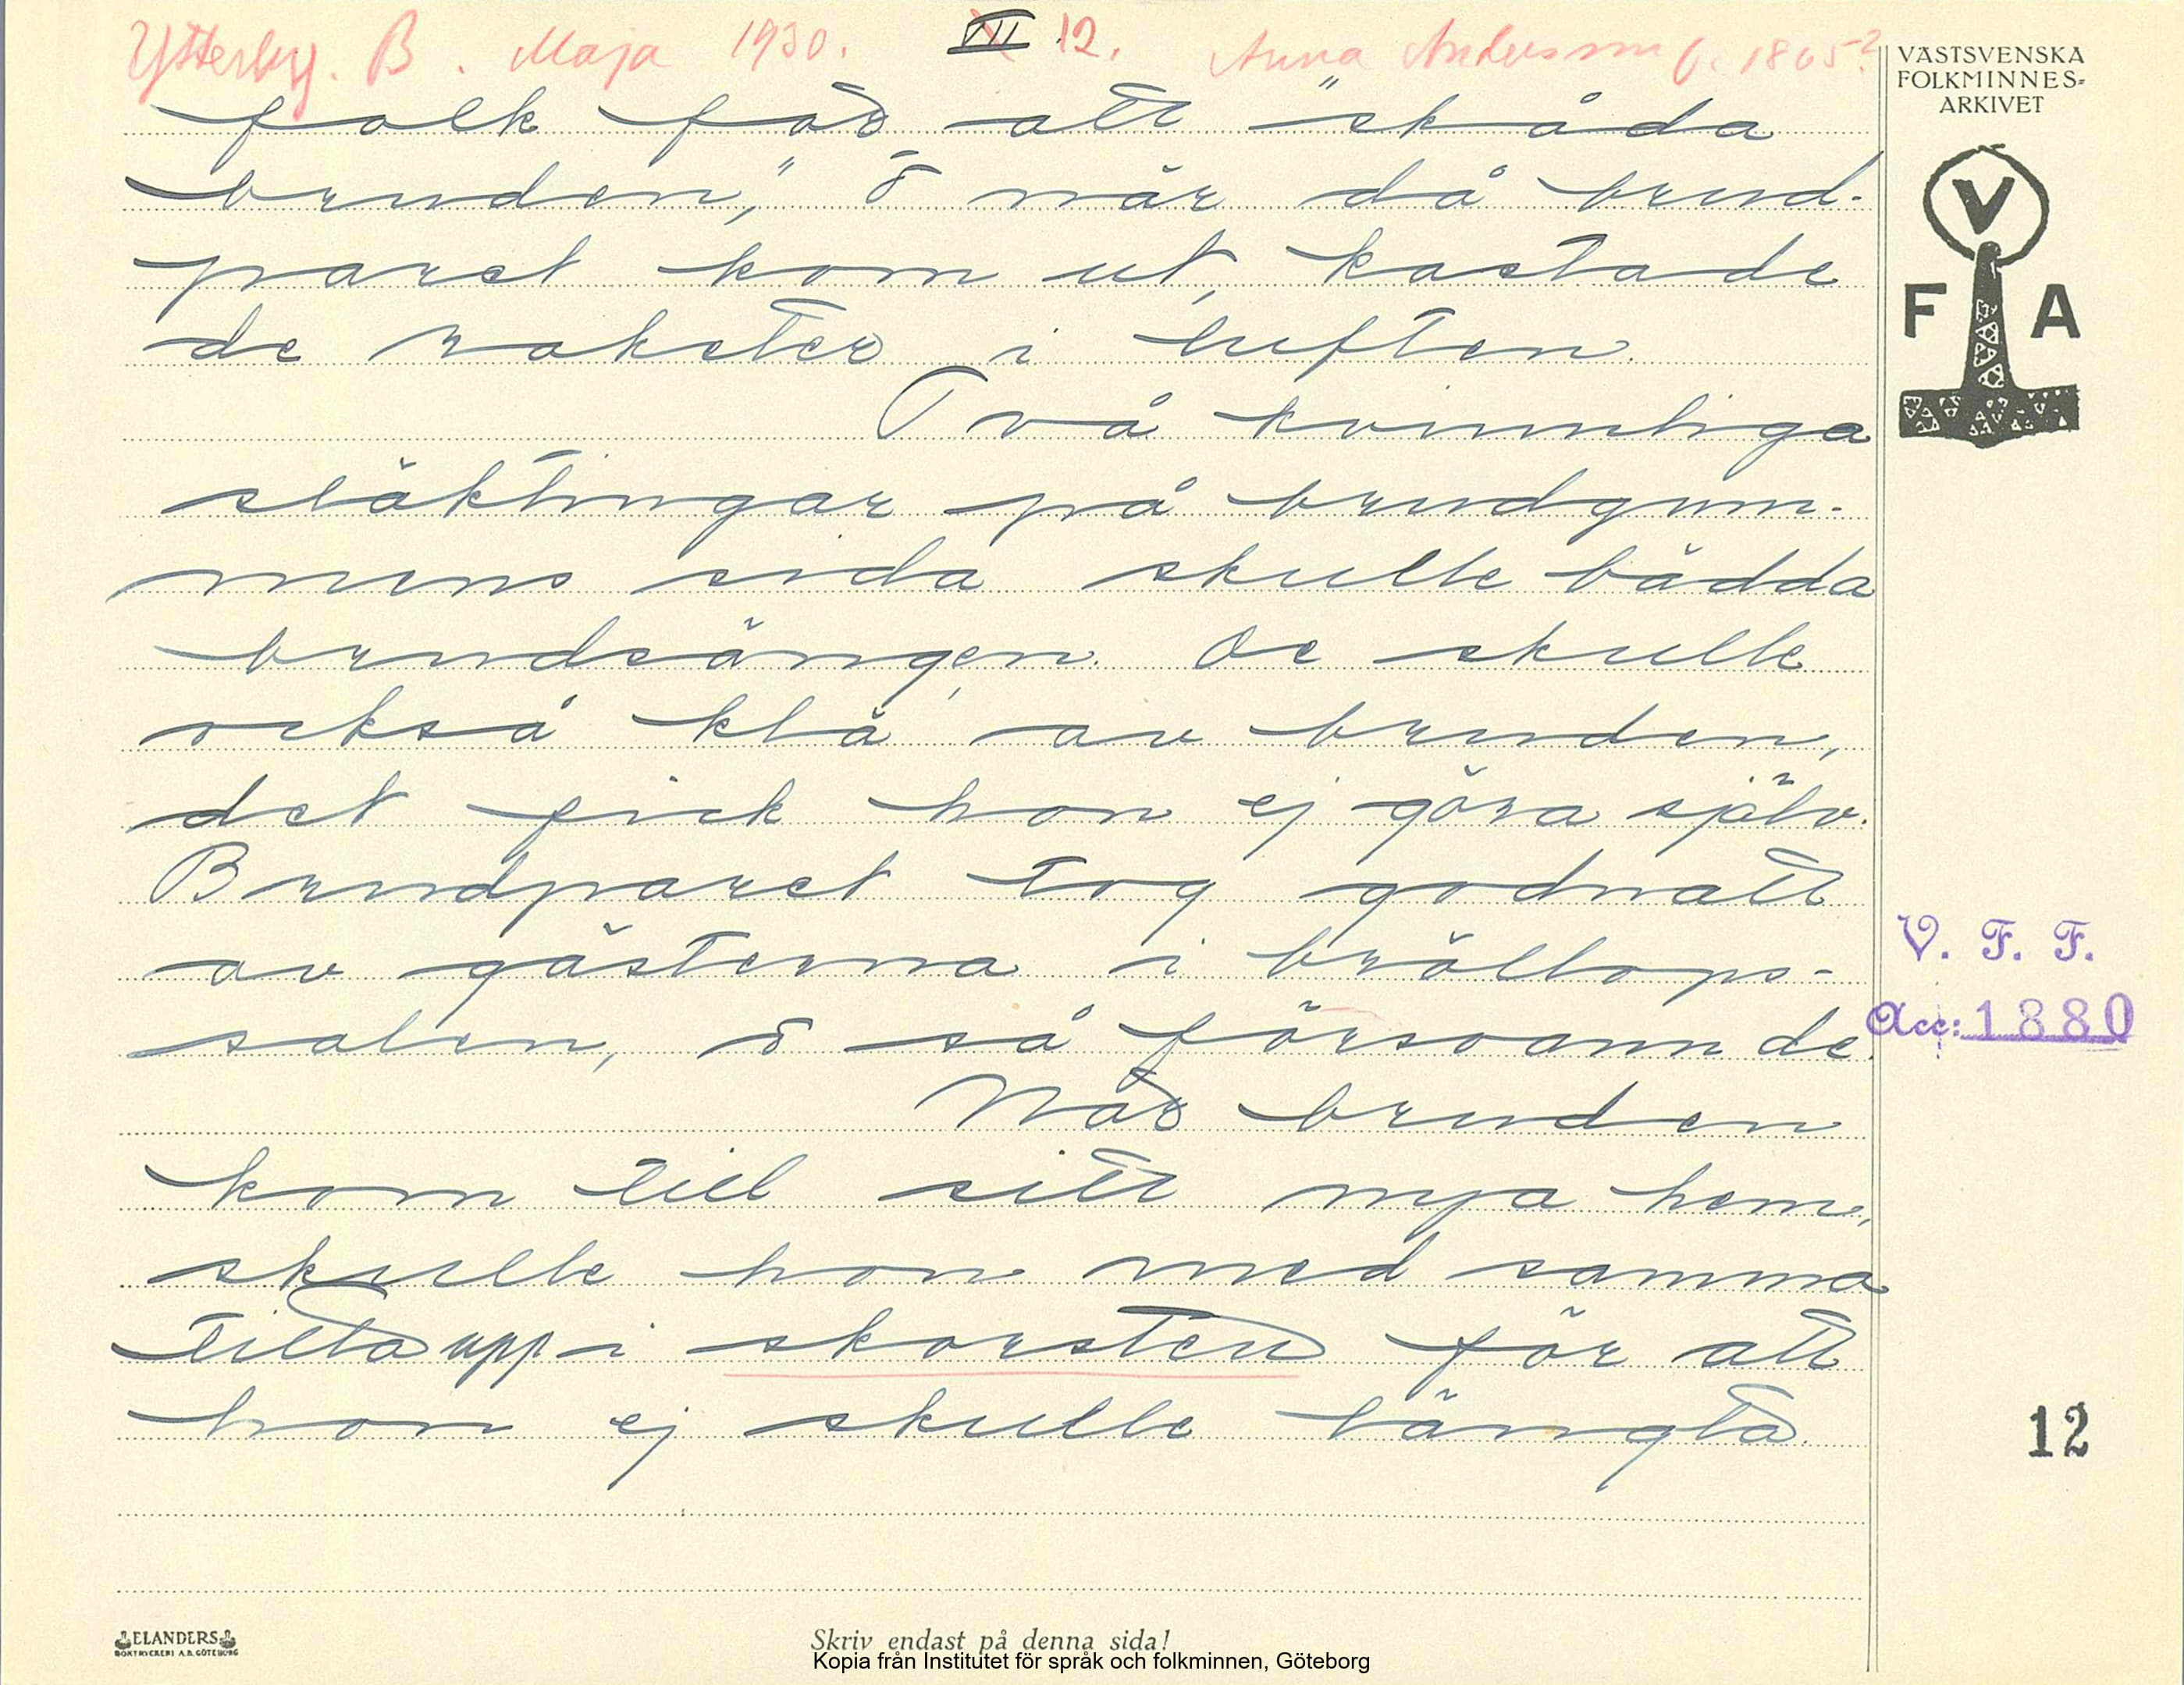 Ytterby. B. Maja 1930. VII 12. Anna Andersson f. 1865?
VÄSTSVENSKA
FOLKMINNES-
ARKIVET
folk för att "skåda
bruden," o när då brud-
paret kom ut, kastade
de raketer i luften.
Två kvinnliga
släktingar på brudgum-
mens sida skulle bädda
brudsängen. De skulle
också klä av bruden,
det fick hon ej göra själv.
Brudparet tog godnatt
av gästerna i bröllops-
salen, o så försvann de.
När bruden
kom till sitt nya hem,
skulle hon med samma
titta upp i skorsten för att
hon ej skulle längta.
V
F A
V. F. F.
Acc: 1880
12
ELANDERS
BOKTRYCKERI A.B. GÖTEBORG
Skriv endast på denna sida!
Kopia från Institutet för språk och folkminnen, Göteborg